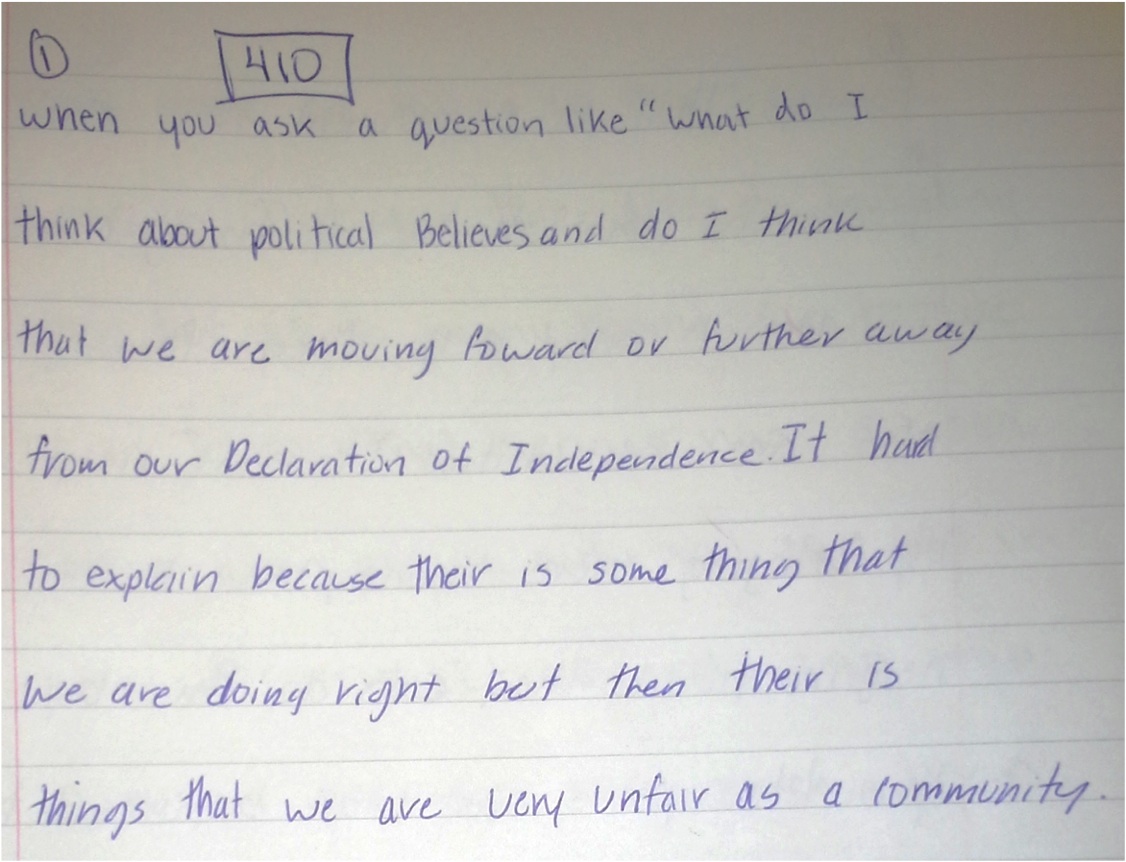 ① 410
when you ask a question like "What do I
think about political Believes and do I think
that we are moving foward or further away
from our Declaration of Independence. It hard
to explain because their is some thing that
We are doing right but then their is
things that we are very unfair as a community.